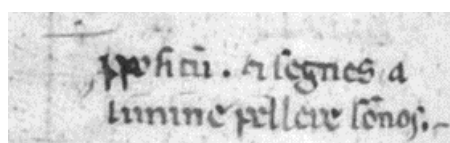 ppoſitũ. ⁊ ſegnes a
lumine pellere ſõnoſ.